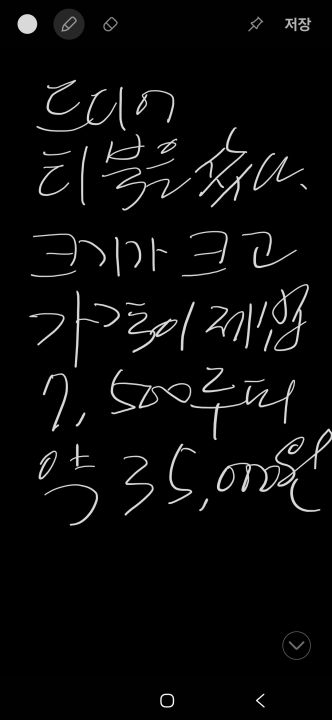 저장
드디어
티블을 샀다.
크기가 크고
가격이 제법
7,500루피
약 35,000원